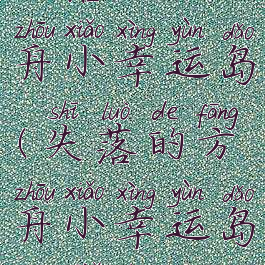 zhōu xiǎo xìng yùn dǎo
舟小幸运岛
shī luò de fāng
(失落的方
zhōu xiǎo xìng yùn dǎo
舟小幸运岛